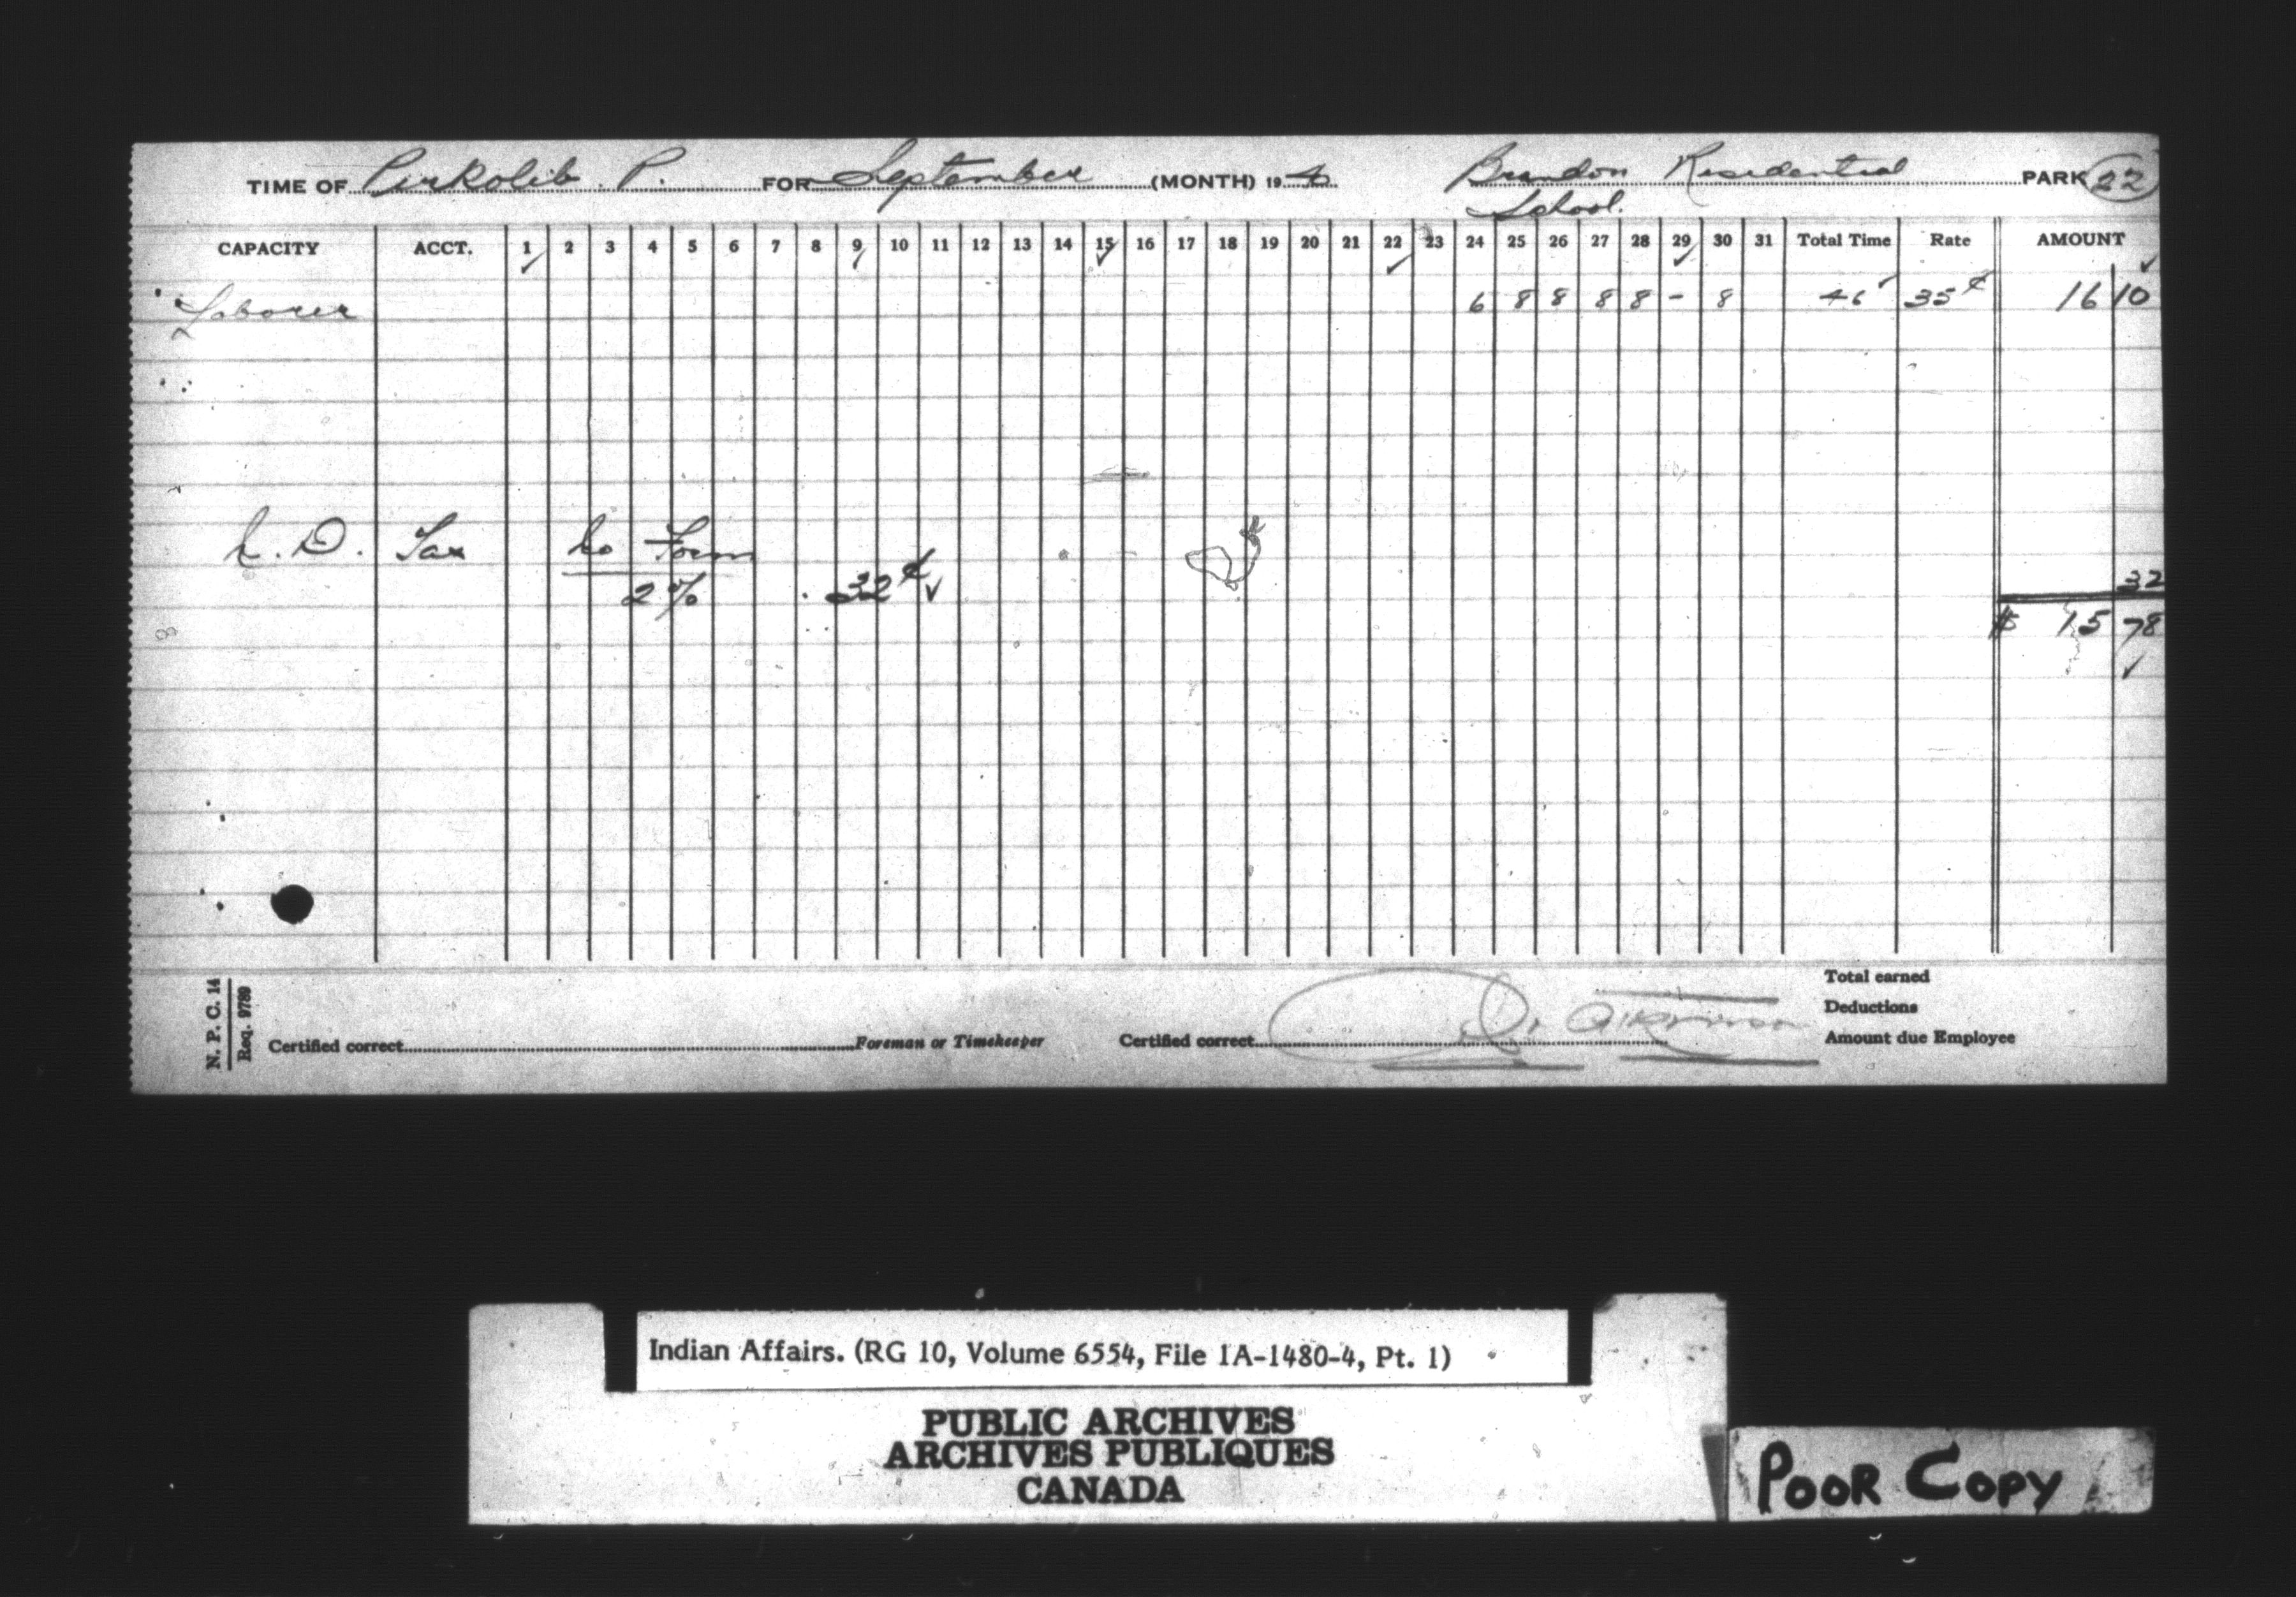 TIME OF Pirkolib. P. FOR September (MONTH) 1940 Brandon Residential School. PARK 22
CAPACITY ACCT. 1 2 3 4 5 6 7 8 9 10 11 12 13 14 15 16 17 18 19 20 21 22 23 24 25 26 27 28 29 30 31 Total Time Rate AMOUNT
Laborer 6 8 8 8 8 - 8 46 35¢ 16 10
N. D. Tax No Form
2% 32¢ 32
$ 15 78
Total earned
Deductions
Certified correct Foreman or Timekeeper Certified correct Amount due Employee
N. P. C. 14
Req. 9789
Indian Affairs. (RG 10, Volume 6554, File 1A-1480-4, Pt. 1)
PUBLIC ARCHIVES
ARCHIVES PUBLIQUES
CANADA
POOR COPY